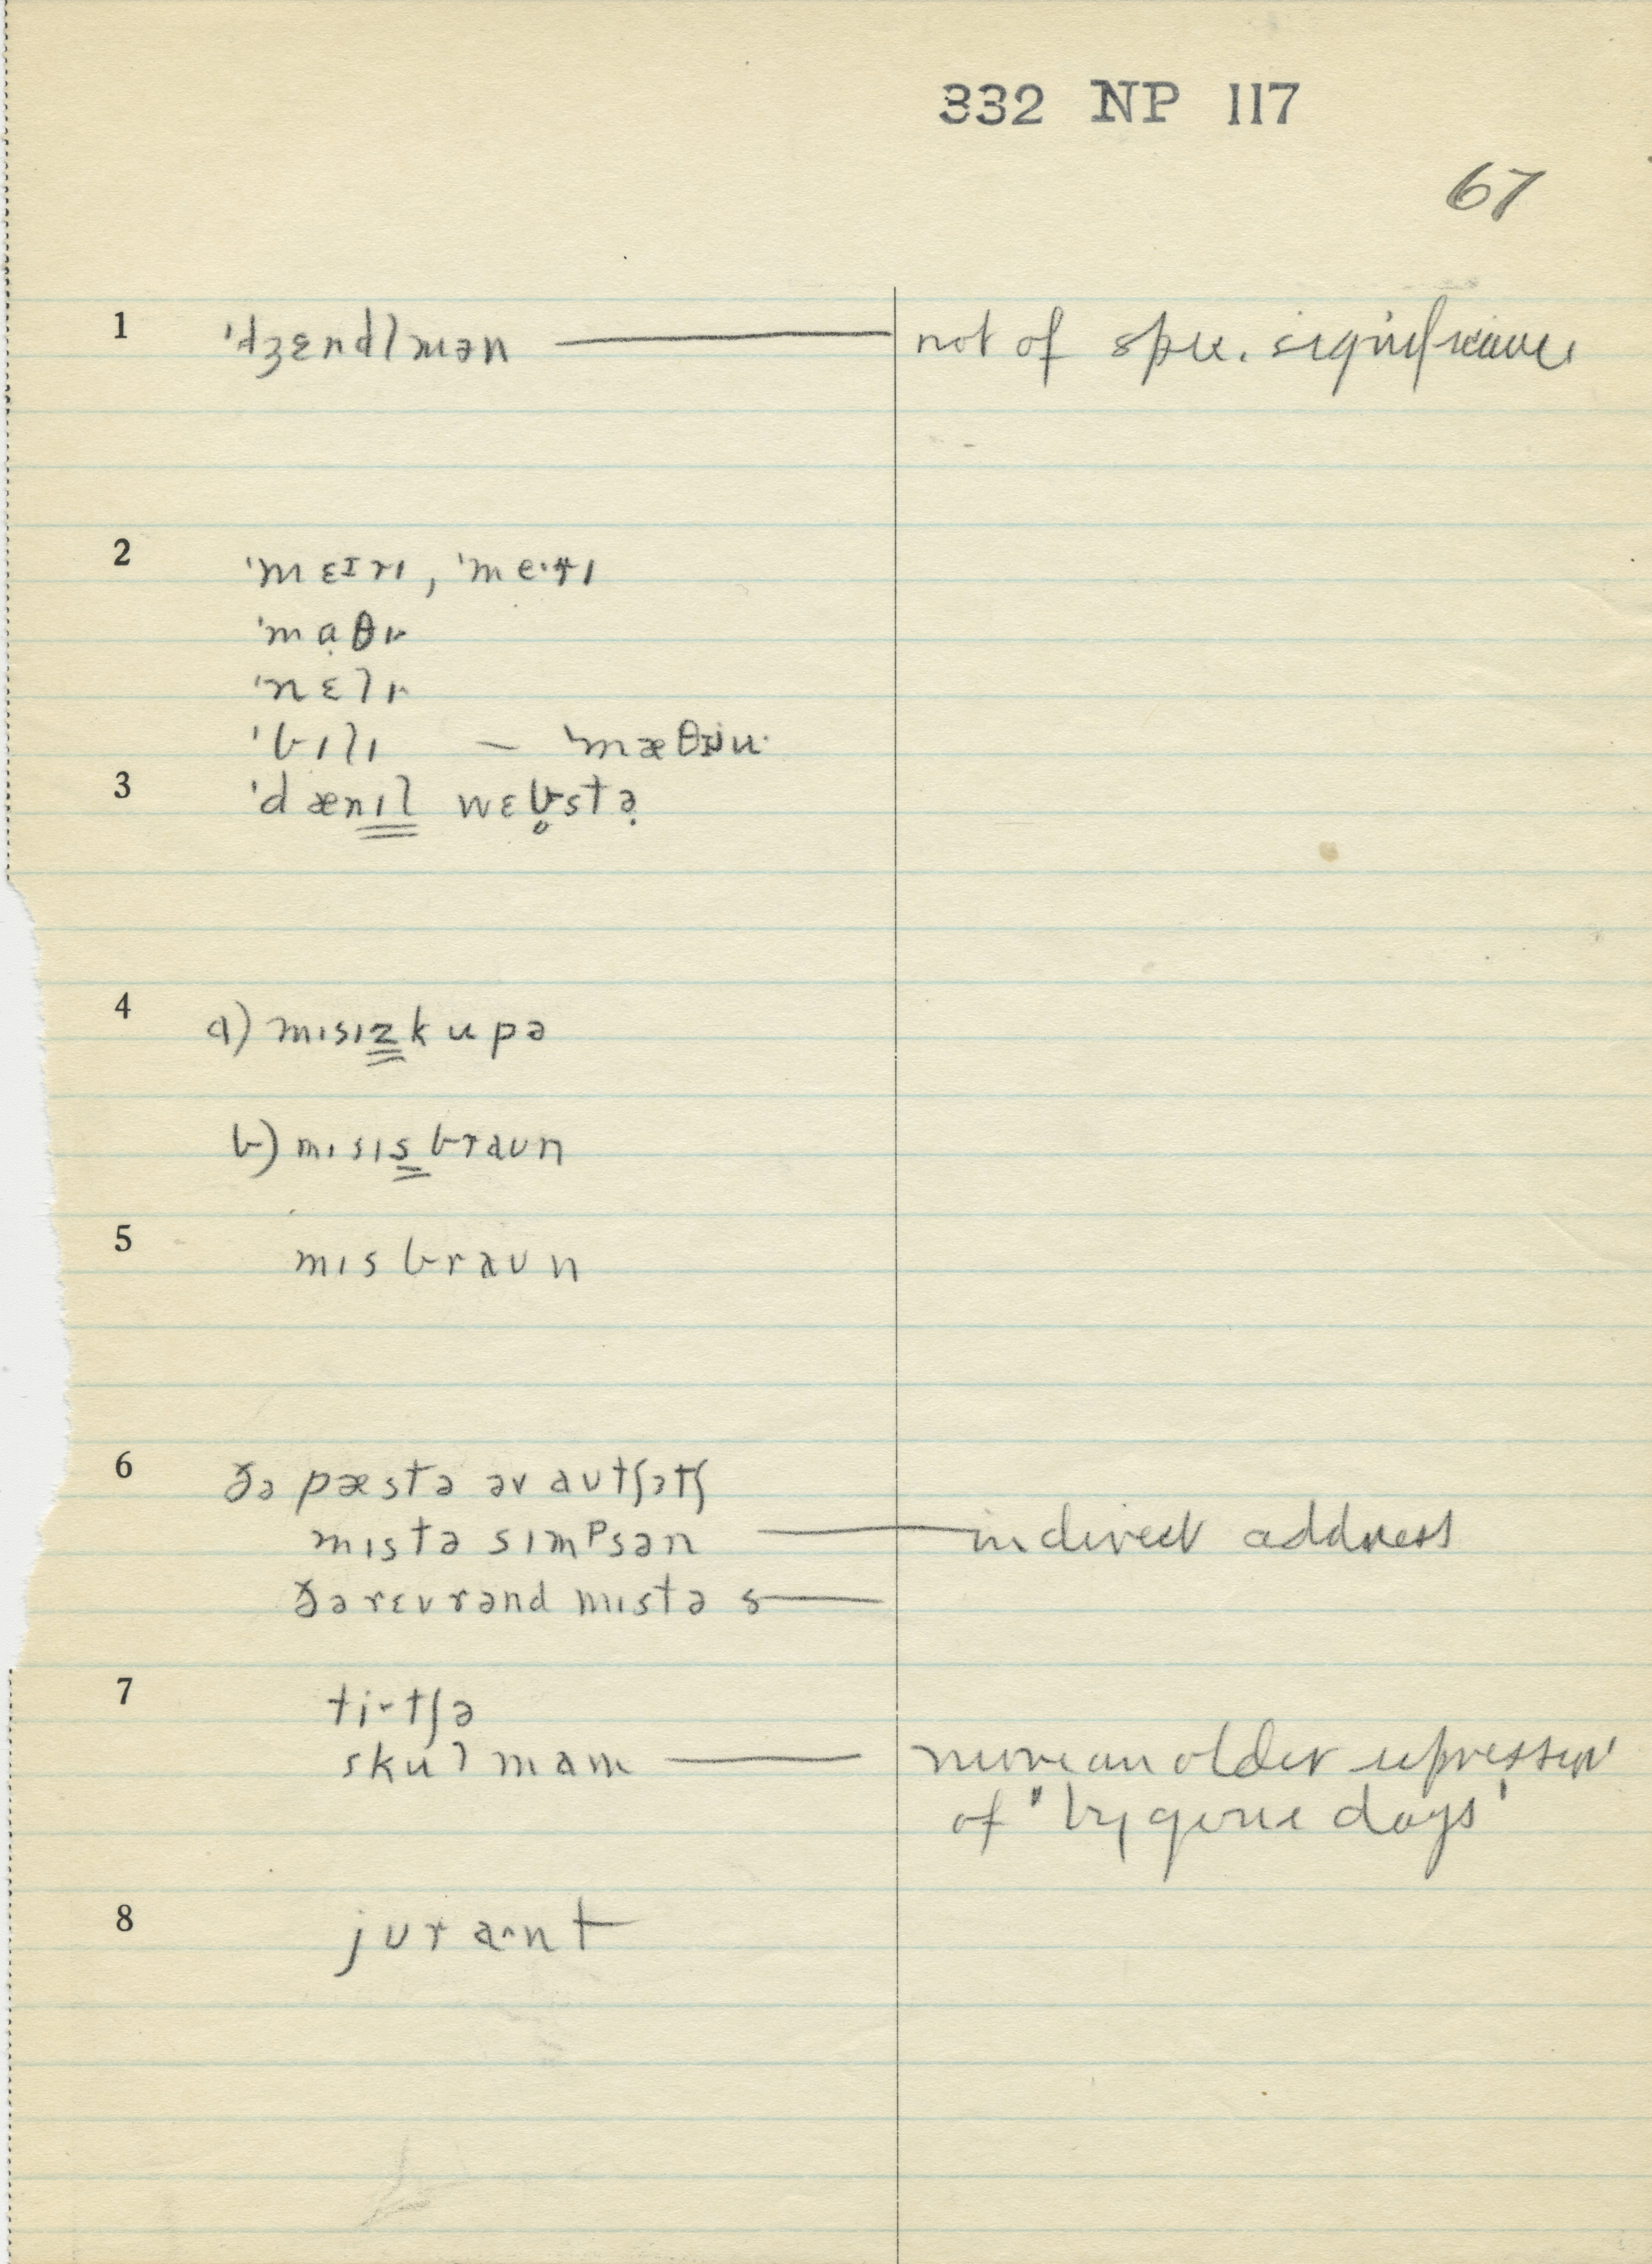 332 NP 117
67
1 ˈdʒɛndlmən — not of spec. significance
2 ˈmɛɪrɪ, ˈmeˑrɪ
ˈmạθɪ
ˈnɛlɪ
ˈbɪlɪ — ˈmæθɪu
3 ˈdænɪl wɛb̥stə̣
4 a) mɪsɪzkupə
b) mɪsɪsbraʊn
5 mɪsbraʊn
6 ðə pæstə əv aʊtʃətʃ
mɪstə sɪmᵖsən — indirect address
ðərɛvrənd mɪstə s—
7 tiˑtʃə
skulmam — more an older expression
of 'bygone days'
8 jʊraˑnt